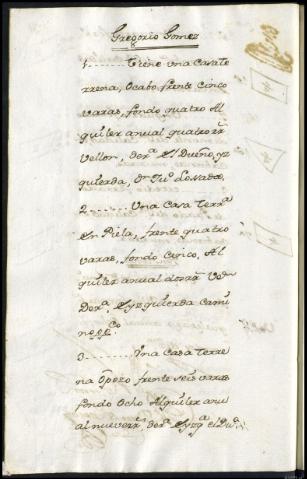 Gregorio Gomez
1........ Tiene una Casa te
rrena, Ocabo, frente Cinco
varas, fondo quatro Al
quiler anual quatro rr.
Vellon, Dor.ª El Dueño, yz
quierda, Dn Ju.º Losada.
2........ Una Casa Terr.ª
En Piela, frente quatro
varas, fondo Cinco, Al
quiler anual dos rr. Von
Dor.ª, Eyzquierda Cami
no pp.co.
3........ Una Casa Terre
na Opozo frente seis varas
fondo Ocho Alquiler anu
al nueve rr., Dor.ª Eyzq.ª el Du.º